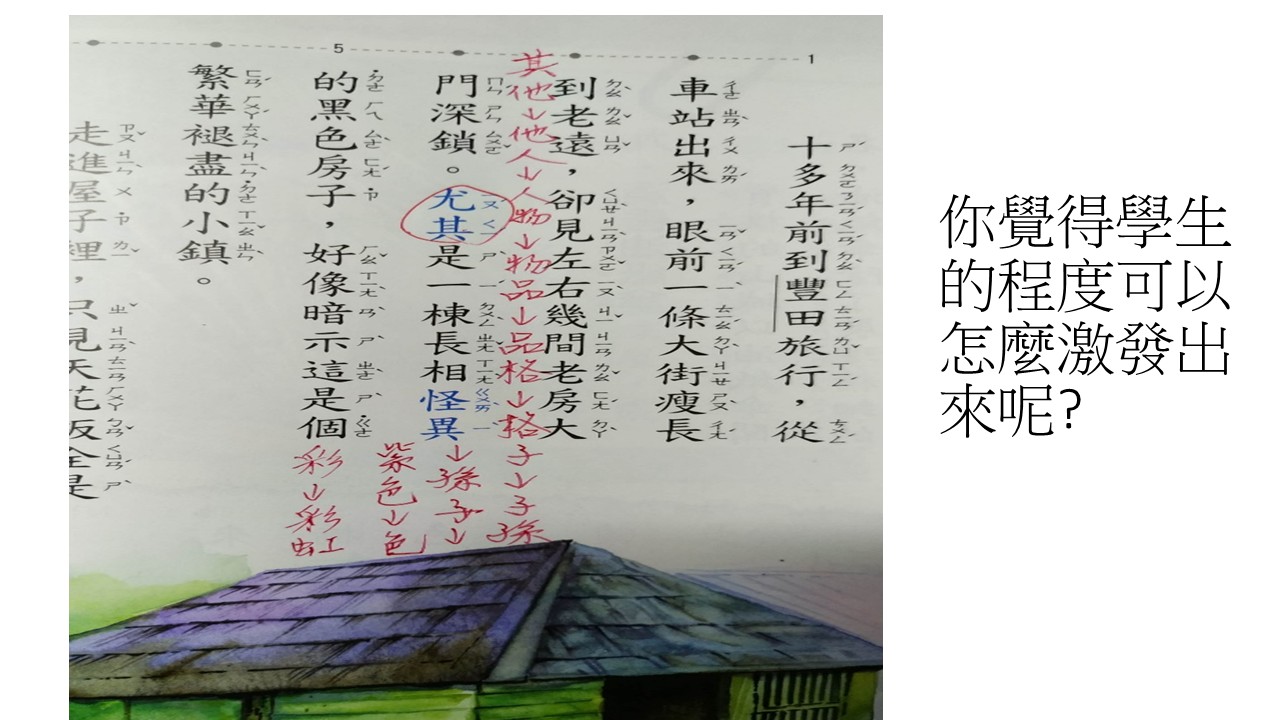 1
5
十多年前到豐田旅行，從
車站出來，眼前一條大街瘦長
到老遠，卻見左右幾間老房大
門深鎖。尤其是一棟長相怪異
的黑色房子，好像暗示這是個
繁華褪盡的小鎮。
走進屋子裡，只見天花板全是
其他↓他人↓人物↓物品↓品格↓格子↓子孫
↓孫子↓
紫色↓色
彩↓彩虹
你覺得學生
的程度可以
怎麼激發出
來呢?